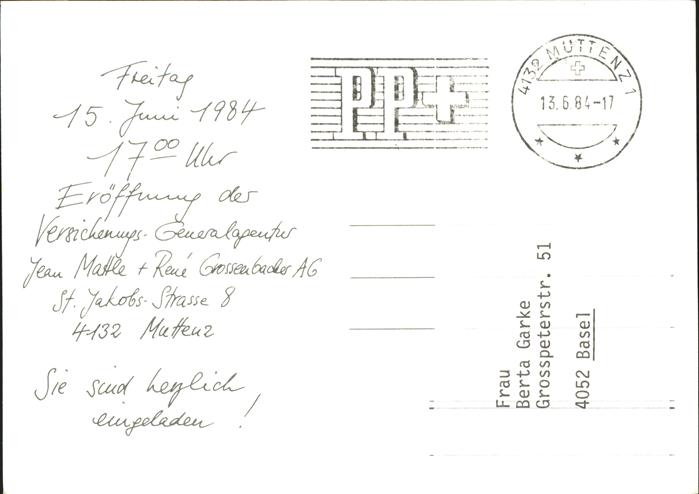 Freitag
15. Juni 1984
17⁰⁰ Uhr
Eröffnung der
Versicherungs-Generalagentur
Jean Mattle + René Grossenbacher AG
St. Jakobs-Strasse 8
4132 Muttenz
Sie sind herzlich
eingeladen !
PP+
4132 MUTTENZ 1
13.6.84-17
Frau
Berta Garke
Grosspeterstr. 51
4052 Basel